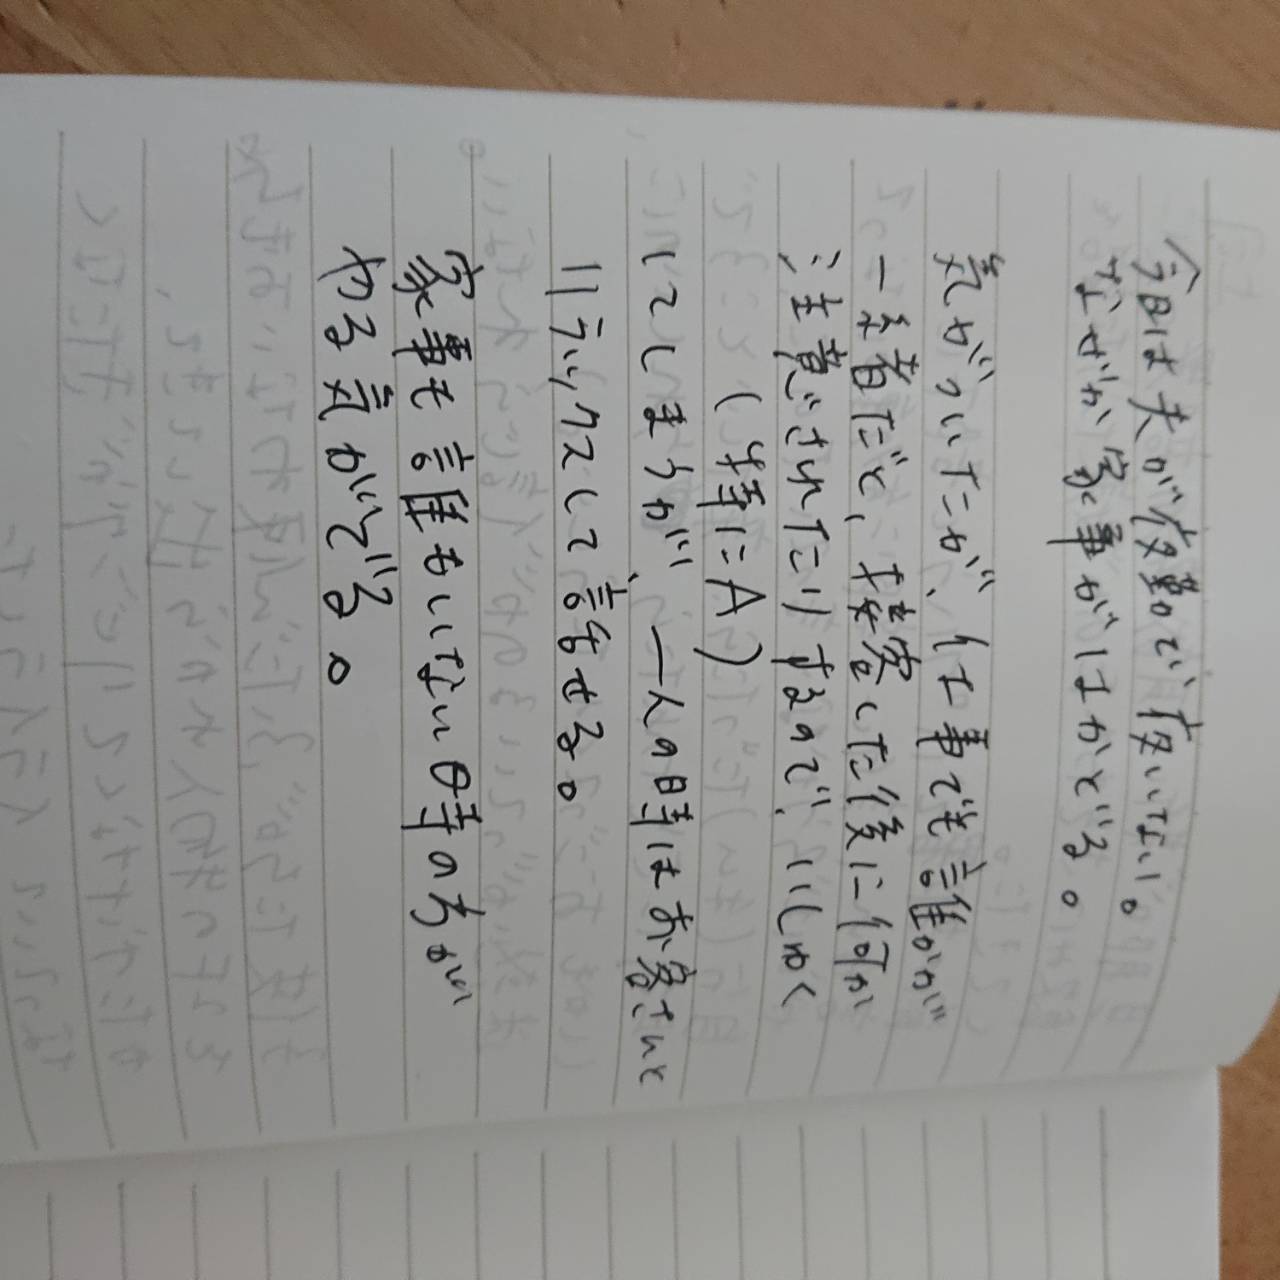 今日は夫が夜勤で夜いない。
なぜか家事がはかどる。
気がついたが、仕事でも誰かが
一緒だと、接客した後に何か
注意されたりするので、いしゅく
(特にA)
してしまうが、一人の時はお客さんと
リラックスして話せる。
家事も誰もいない時の方が
やる気がでる。